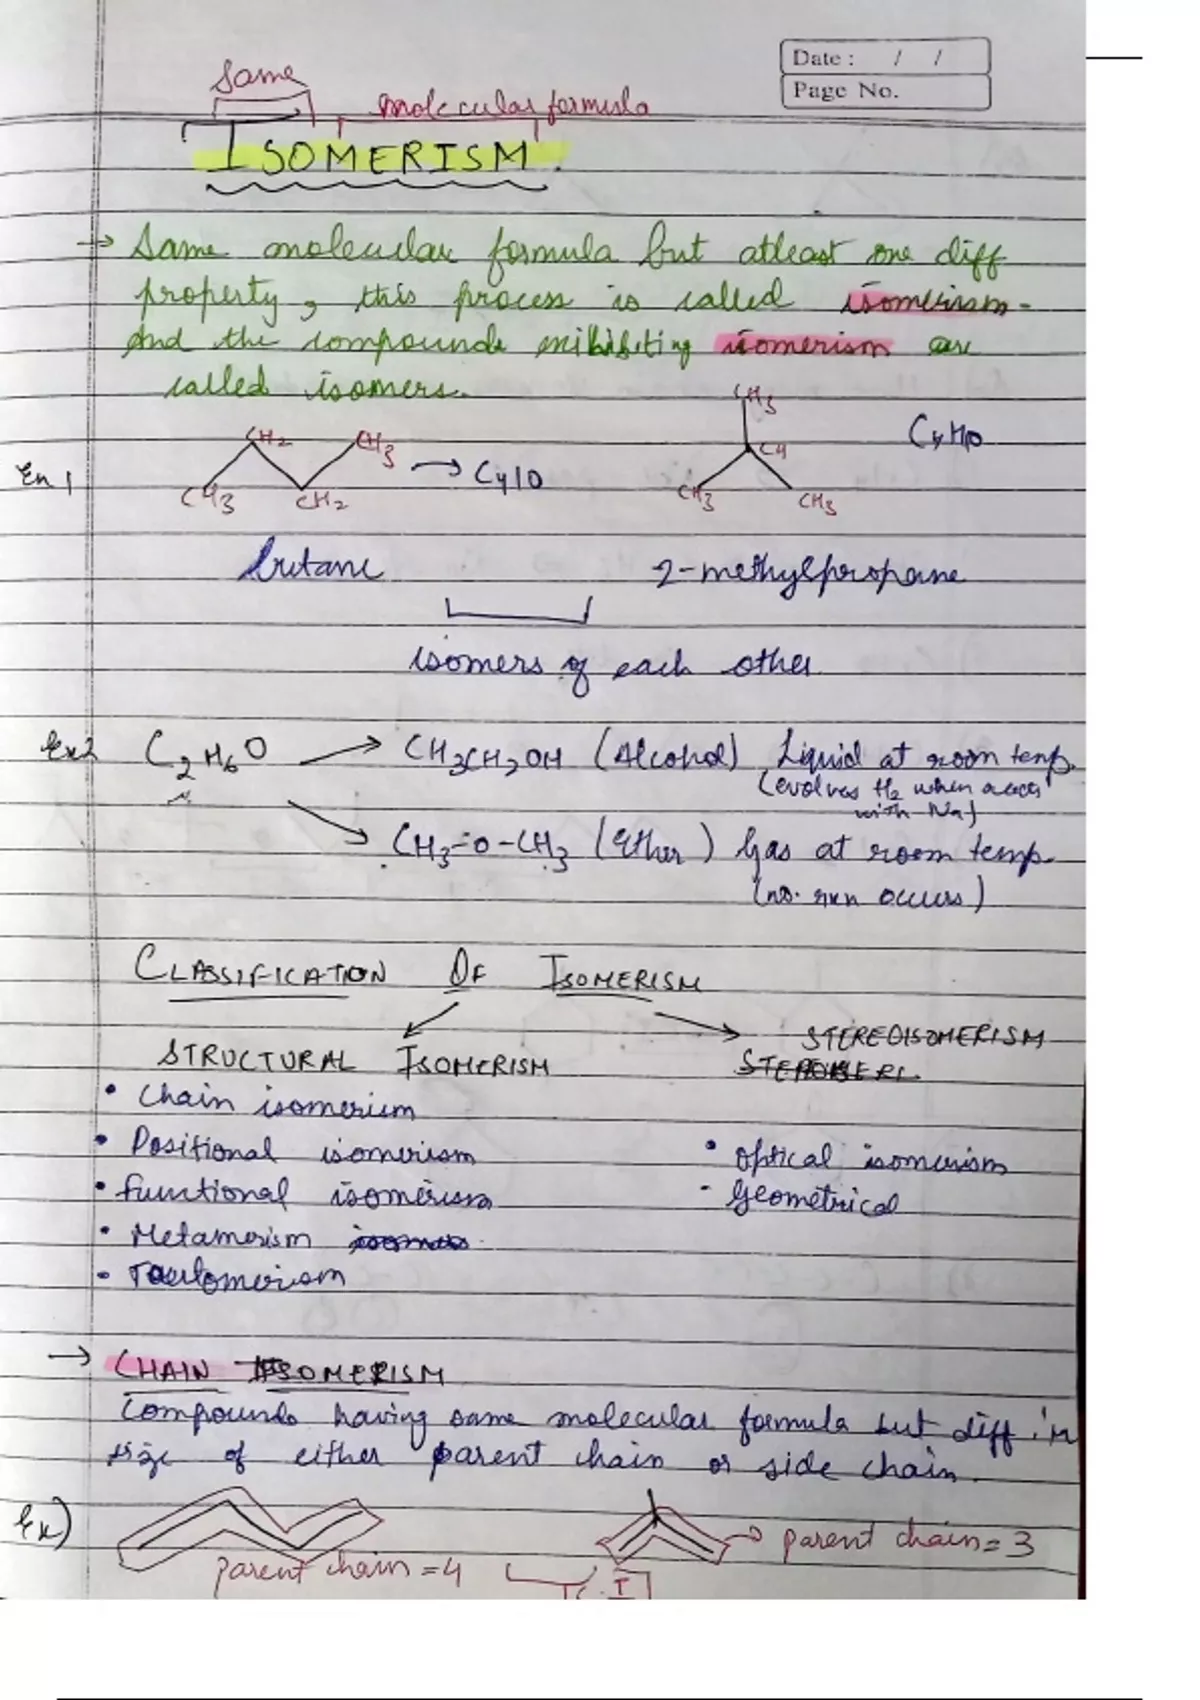 Date : / /
Page No.
Same
molecular formula
ISOMERISM.
→ Same molecular formula but atleast one diff
property, this process is called isomerism-
And the compounds exihibiting isomerism are
called isomers.
Ex 1
CH3 CH2 CH2 CH3 → C4 10
CH3 CH CH3 CH3
C4H10
butane 2-methylpropane
isomers of each other
Ex2 C2H6O → CH3CH2OH (Alcohol) Liquid at room temp.
(evolves H2 when reacts
with Na)
→ CH3-O-CH3 (Ether) Gas at room temp.
(no. rxn occurs)
CLASSIFICATION OF ISOMERISM
STRUCTURAL ISOMERISM
STEREOISOMERISM
• Chain isomerism
• Positional isomerism
• functional isomerism
• Metamerism
• Tautomerism
• Optical isomerism
- Geometrical
→ CHAIN ISOMERISM
Compounds having same molecular formula but diff in
size of either parent chain or side chain.
Ex)
parent chain = 4
→ parent chain = 3